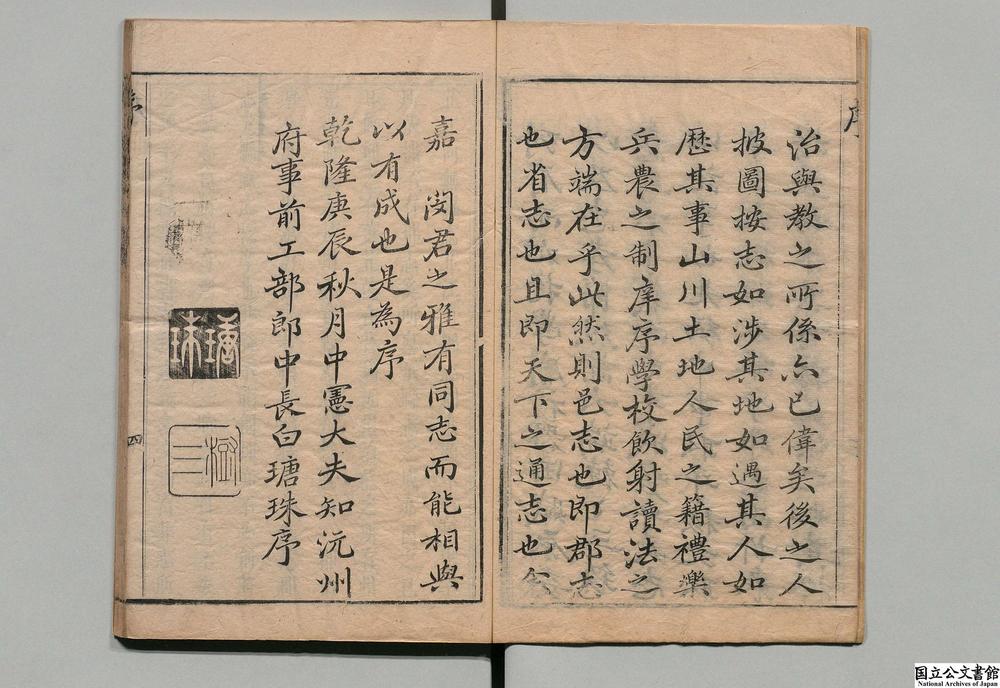 序
治與教之所係亦已偉矣後之人
披圖按志如涉其地如遇其人如
歷其事山川土地人民之籍禮樂
兵農之制庠序學校飲射讀法之
方端在乎此然則邑志也即郡志
也省志也且即天下之通志也余
嘉　閔君之雅有同志而能相與
以有成也是為序
乾隆庚辰秋月中憲大夫知沅州
府事前工部郎中長白瑭珠序
瑭珠
四
国立公文書館
National Archives of Japan